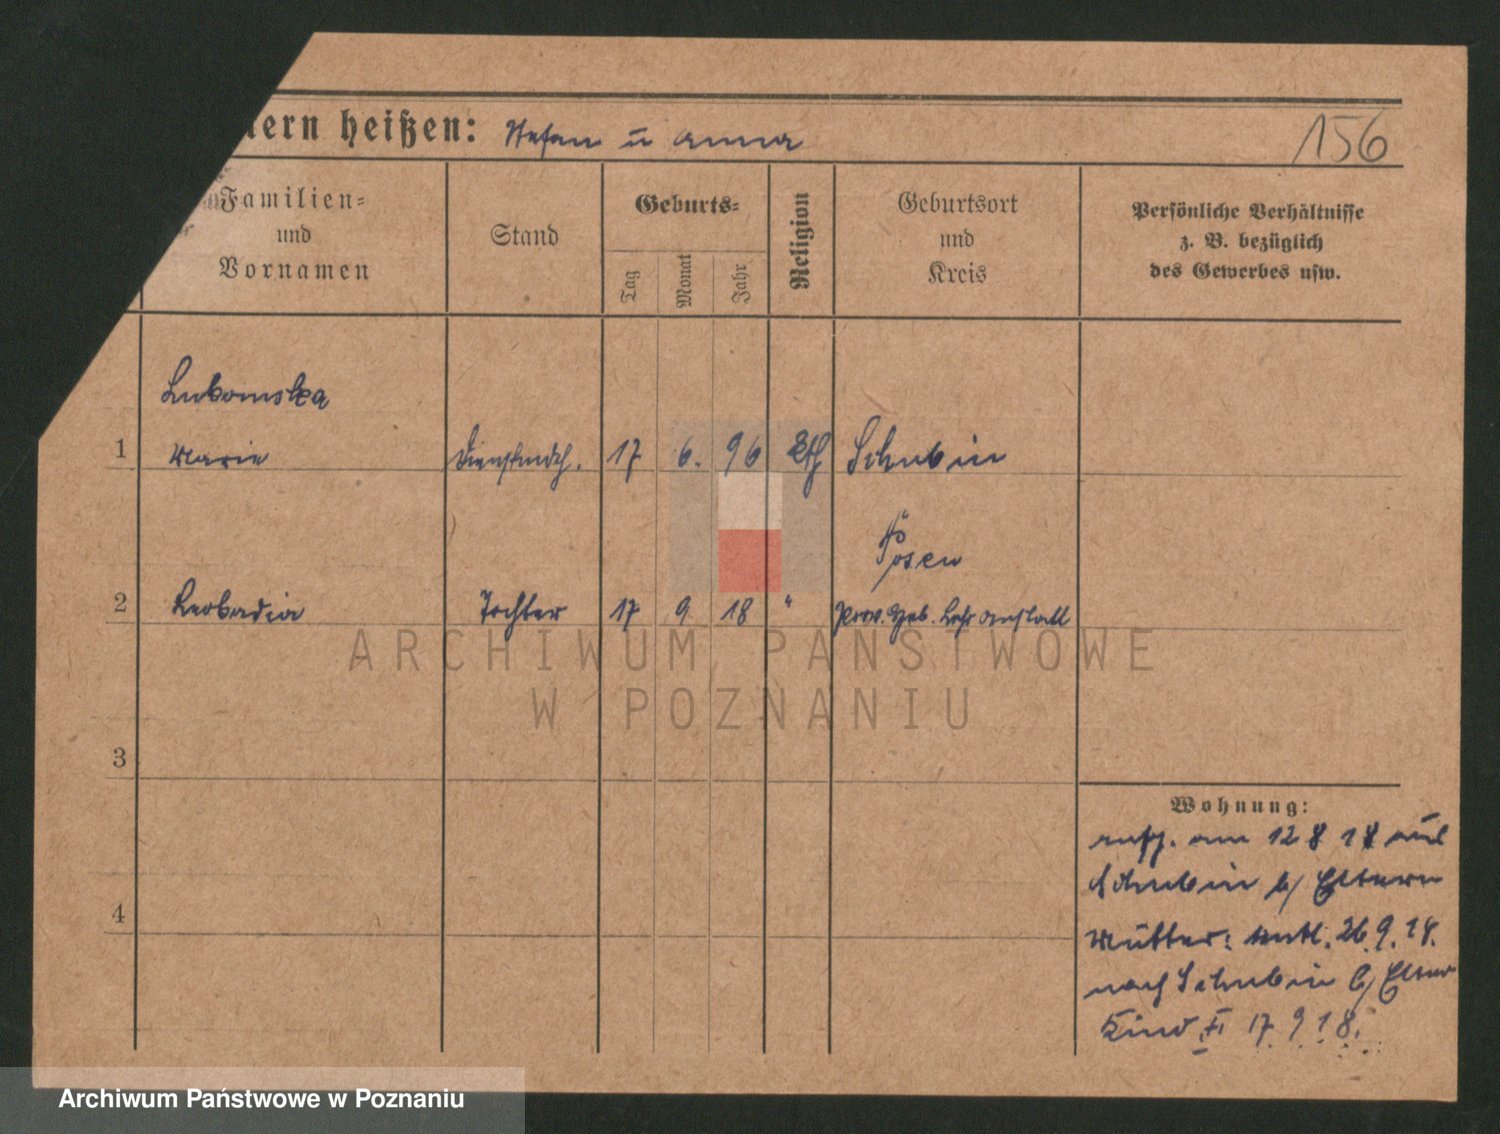 ern heißen: Stefan u Anna
156
Familien-
und
Vornamen
Stand
Geburts-
Tag
Monat
Jahr
Religion
Geburtsort
und
Kreis
Persönliche Verhältnisse
z. B. bezüglich
des Gewerbes usw.
Lukomska
1 Marie Dienstmdch. 17 6. 96 kth Schubin
Posen
2 Leokadia Tochter 17 9 18 " Prov. Heb. Lehranstalt
3
4
Wohnung:
aufg. am 12 8 18 aus
Schubin b/ Eltern
Mutter: entl. 26.9.18.
nach Schubin b/ Eltern
Kind 17 9 18.
ARCHIWUM PAŃSTWOWE
W POZNANIU
Archiwum Państwowe w Poznaniu